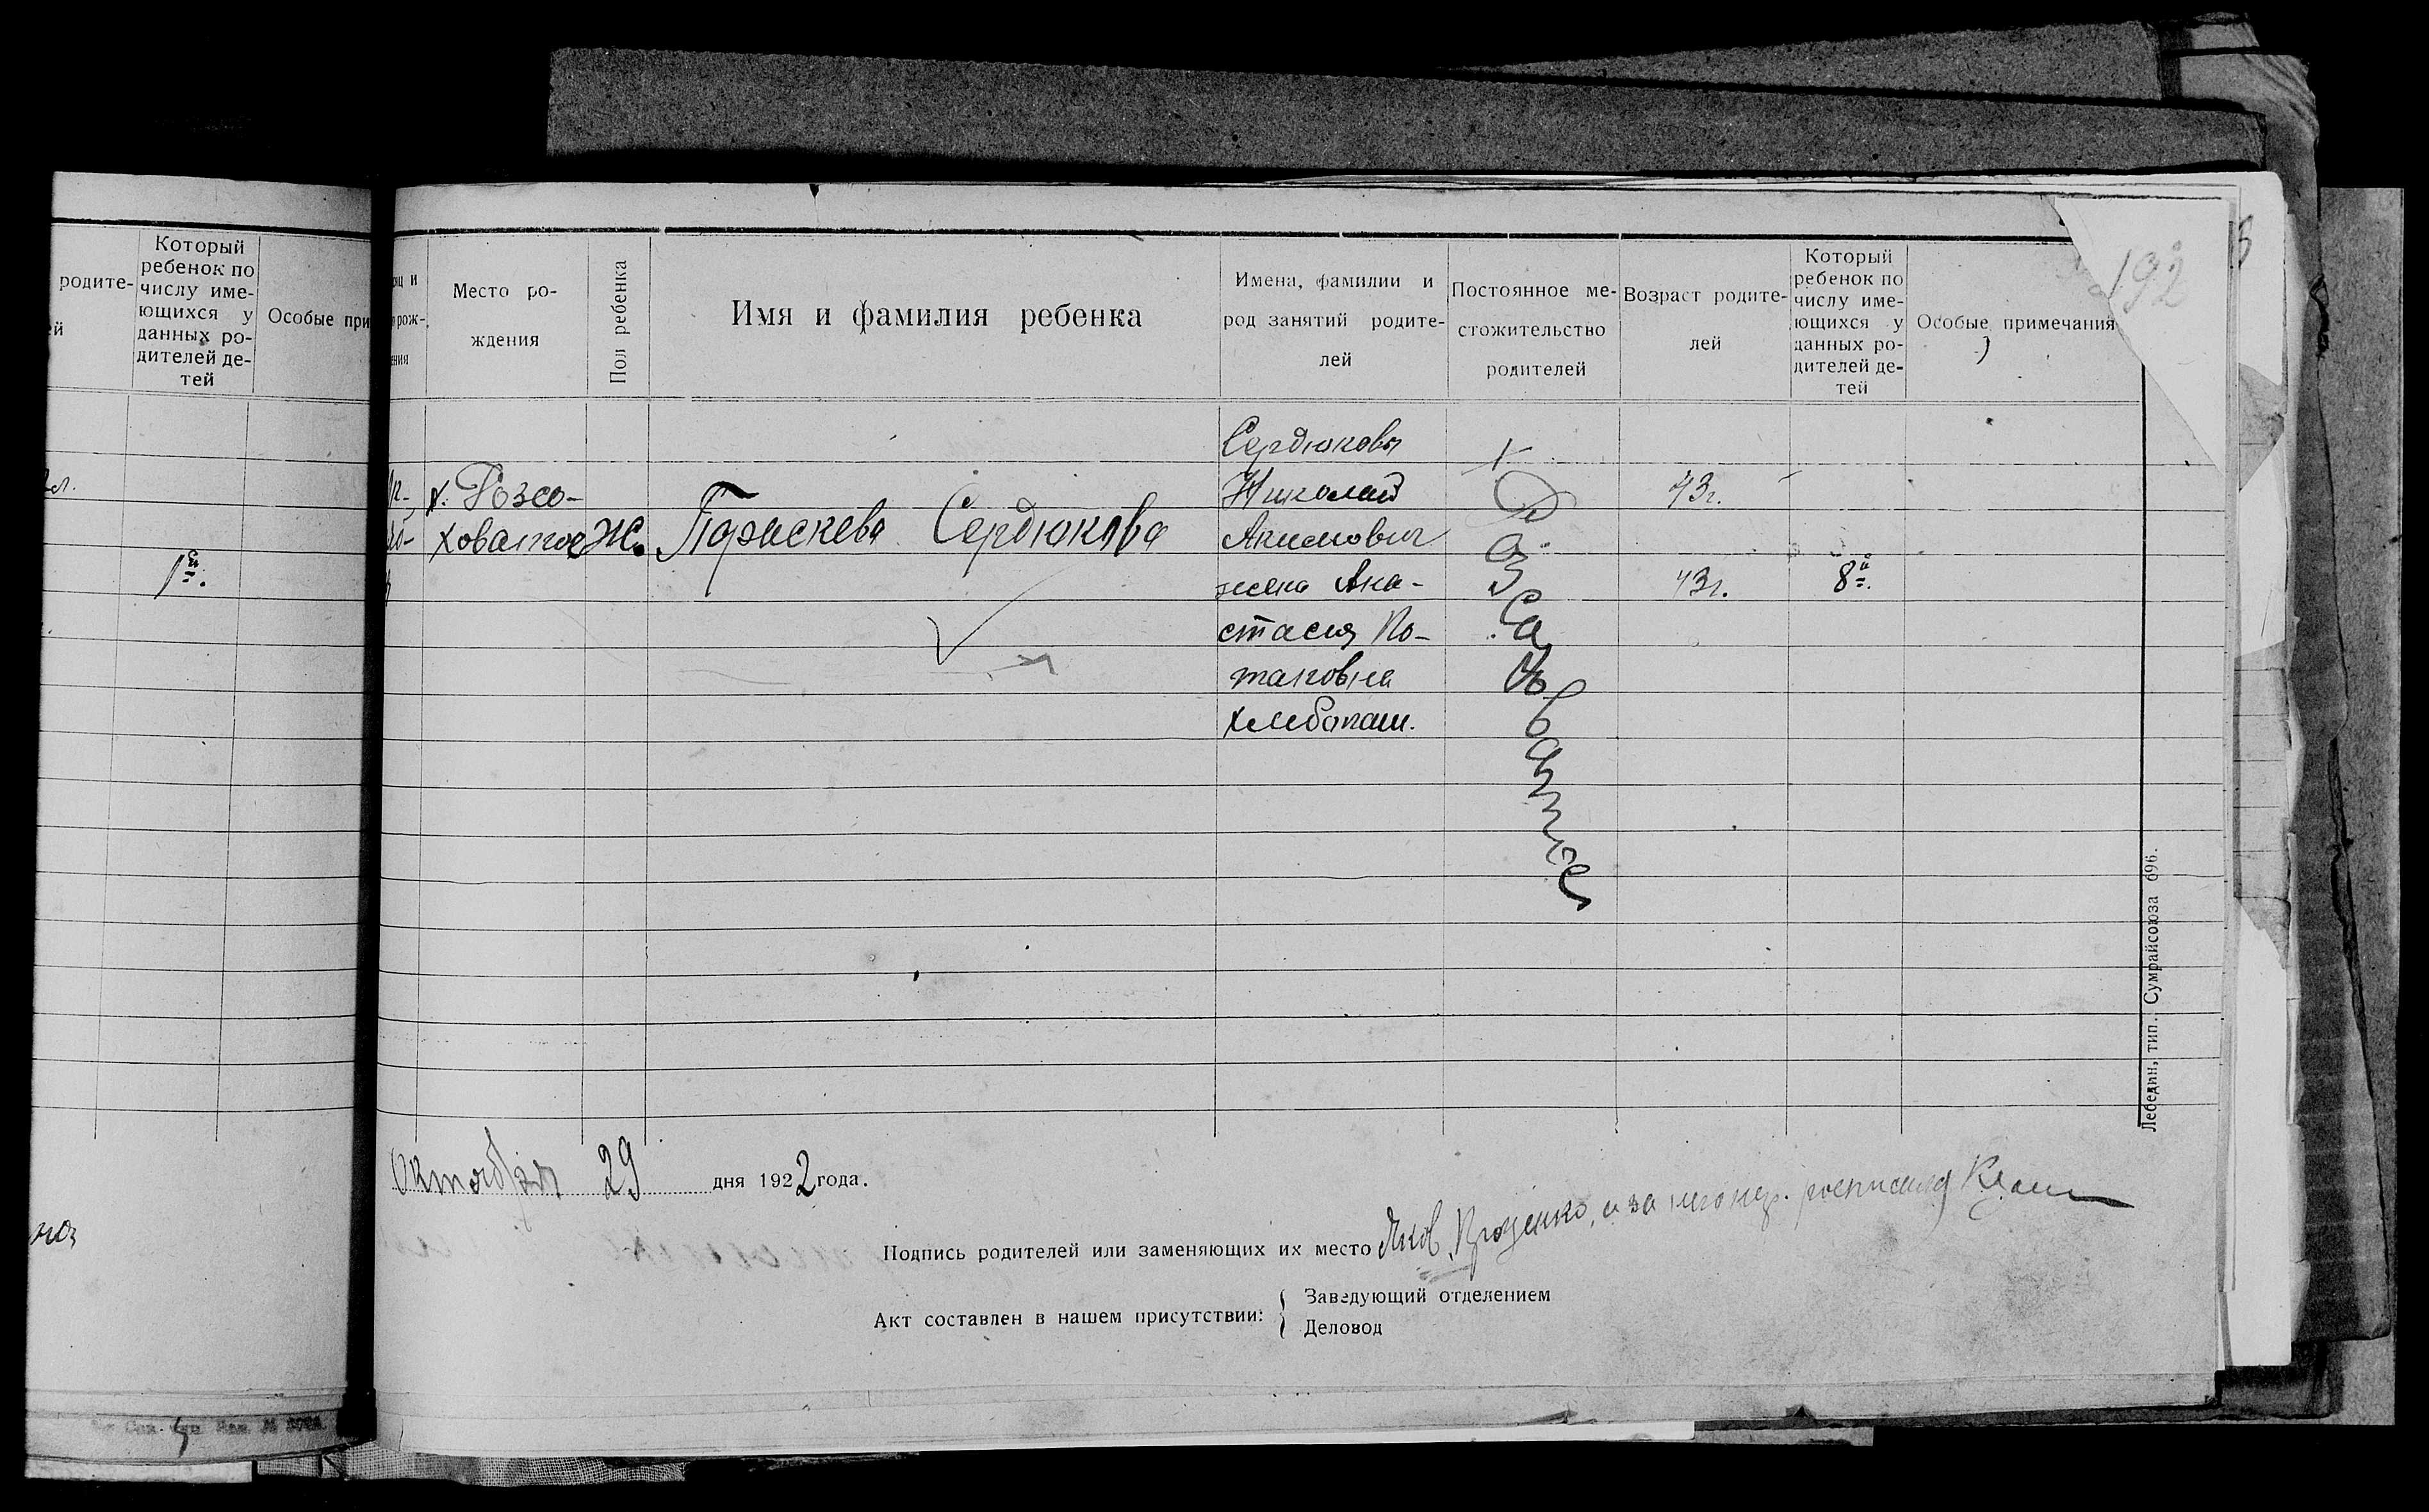 родите-
ей
Который
ребенок по
числу име-
ющихся у
данных ро-
дителей де-
тей
Особые при
1й.
192
Место ро-
ждения
Пол ребенка
Имя и фамилия ребенка
Имена, фамилии и
род занятий родите-
лей
Постоянное ме-
стожительство
родителей
Возраст родите-
лей
Который
ребенок по
числу име-
ющихся у
данных ро-
дителей де-
тей
Особые примечания
х. Розсо-
ховатое
Ж.
Параскева Сердюкова
Сердюковы
Николай
Акимович
жена Ана-
стасия По-
таповна
хлебопаш.
43г.
43г.
8й.
Октября 29 дня 1922 года.
Подпись родителей или заменяющих их место Яков Проценко, а за него расписался
Акт составлен в нашем присутствии:
Заведующий отделением
Деловод
Лебедин, тип. Сумрайсоюза 696.